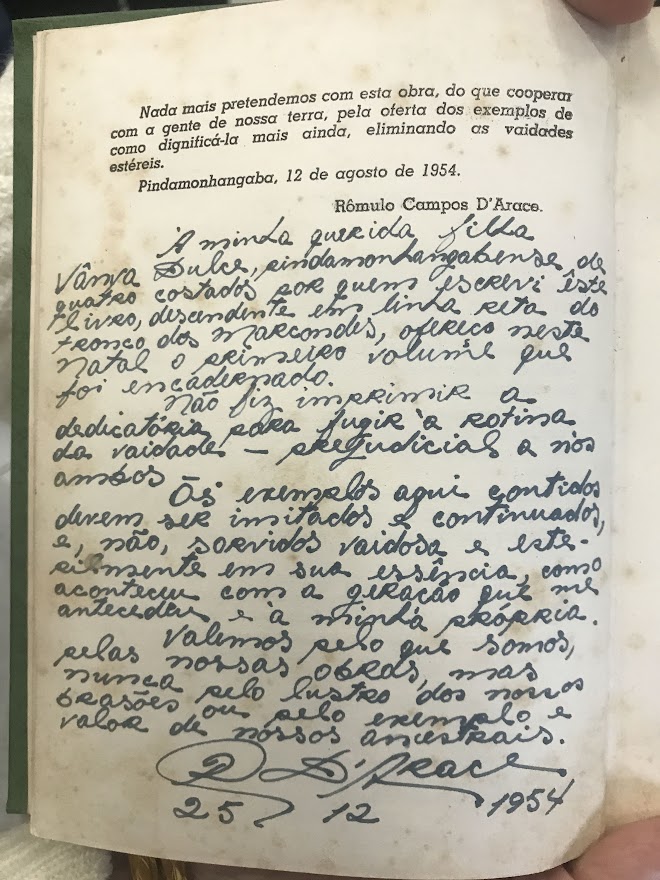 Nada mais pretendemos com esta obra, do que cooperar
com a gente de nossa terra, pela oferta dos exemplos de
como dignificá-la mais ainda, eliminando as vaidades
estéreis.
Pindamonhangaba, 12 de agosto de 1954.
Rômulo Campos D'Arace.
A minha querida filha
Vânya Dulce, pindamonhangabense de
quatro costados por quem escrevi êste
livro, descendente em linha reta do
tronco dos Marcondes, ofereço neste
Natal o primeiro volume que
foi encadernado.
Não fiz imprimir a
dedicatória para fugir à rotina
da vaidade — prejudicial a nós
ambos —
Os exemplos aqui contidos
devem ser imitados e continuados,
e, não, sorvidos vaidosa e este-
rilmente em sua essência, como
aconteceu com a geração que me
antecedeu e à minha própria.
Valemos pelo que somos,
pelas nossas obras, mas
nunca pelo lustro dos nossos
brasões ou pelo exemplo e
valor de nossos ancestrais.
R D'Arace
25 12 1954